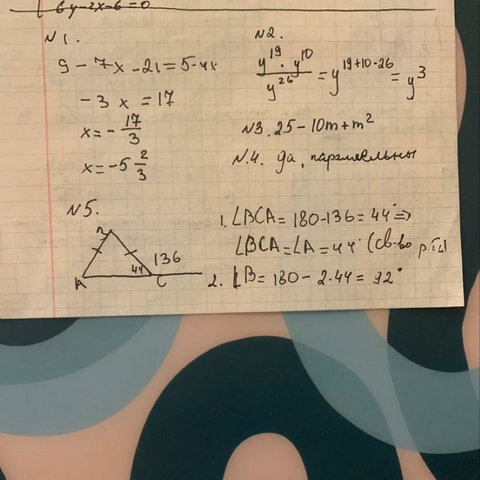 6y-2x-6=0
N1.
9 - 7x - 21 = 5-4x
- 3 x = 17
x = - 17/3
x = -5 2/3
N2.
y^19 · y^10 / y^26 = y^19+10-26 = y^3
N3. 25 - 10m + m^2
N.4. да, параллельны
N5.
B
A 44 C 136
1. ∠BCA = 180-136 = 44° =>
∠BCA = ∠A = 44° (св-во р/б
2. ∠B = 180 - 2·44 = 92°